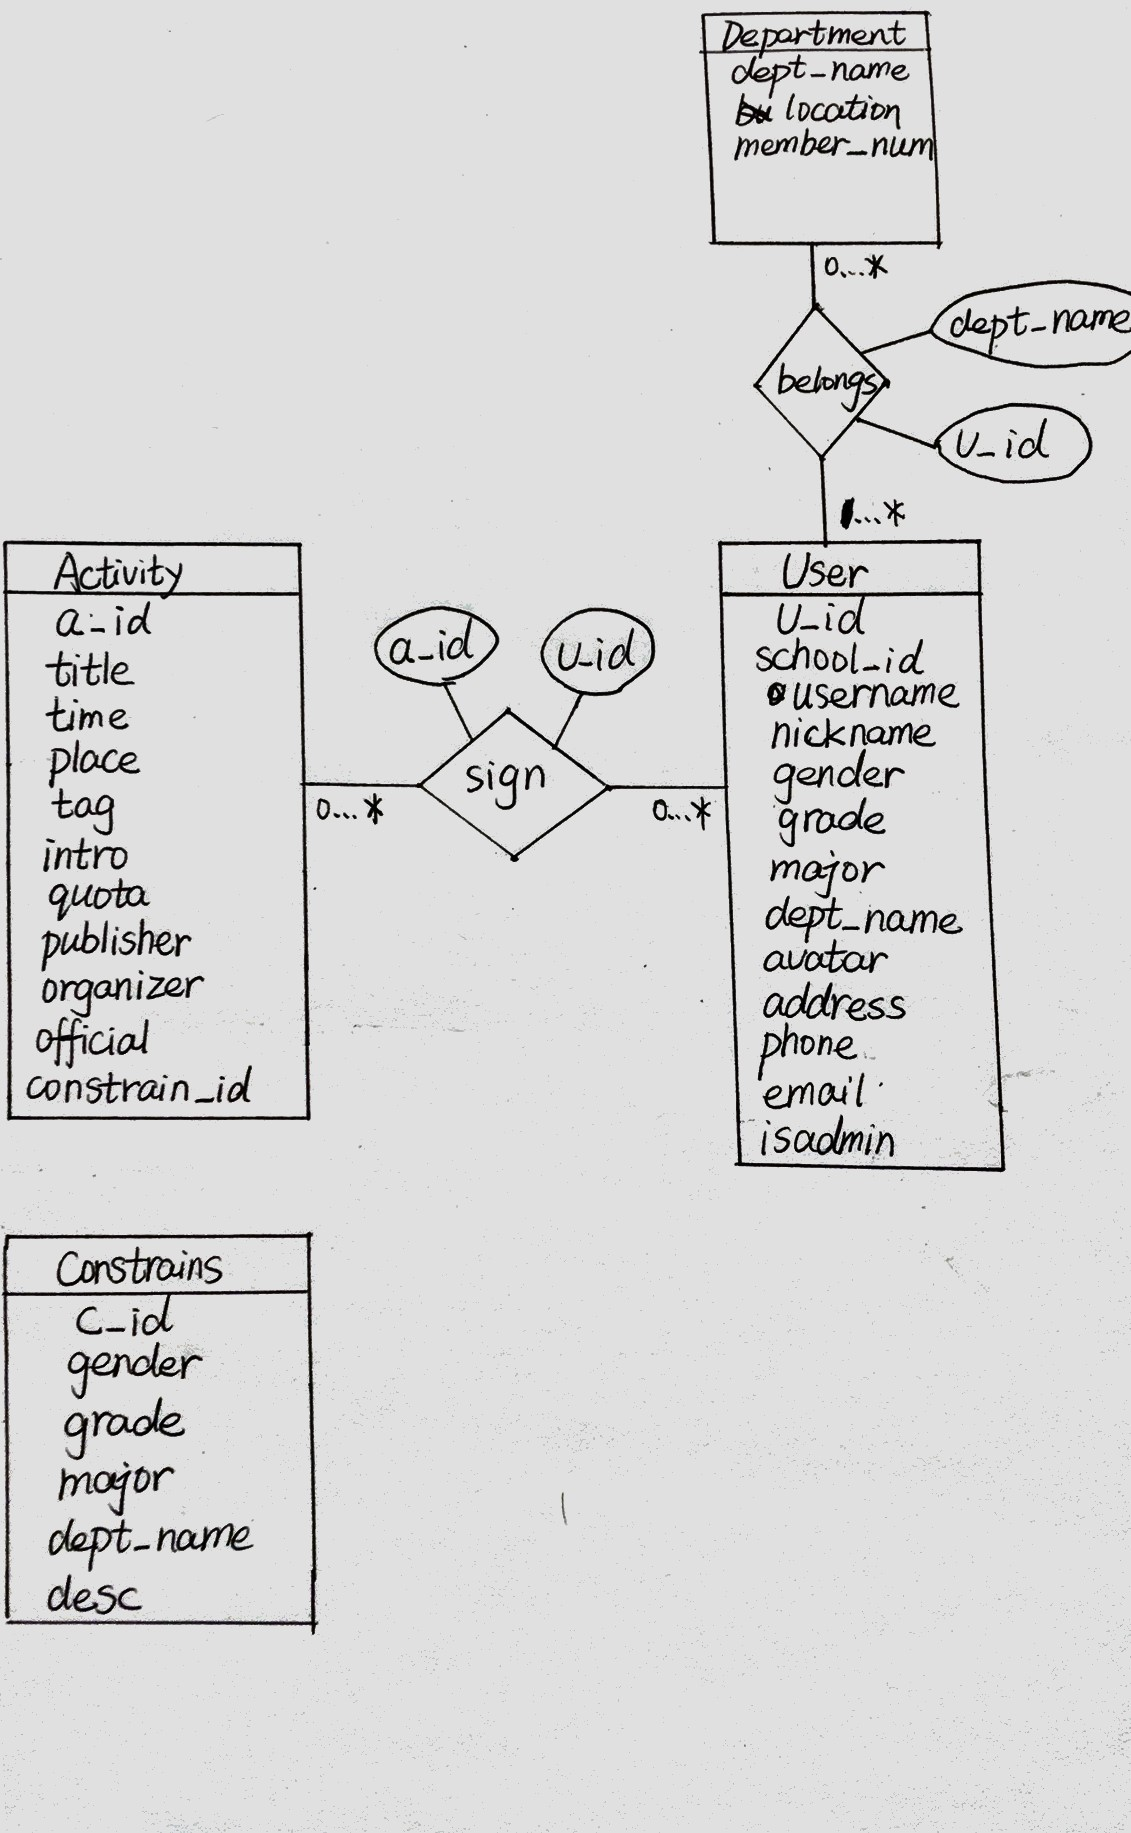 Department
dept_name
location
member_num
0...*
dept_name
belongs
U_id
1...*
Activity
a_id
title
time
place
tag
intro
quota
publisher
organizer
official
constrain_id
a_id
u_id
sign
0...*
0...*
User
U_id
school_id
username
nickname
gender
grade
major
dept_name
avatar
address
phone
email
isadmin
Constrains
C_id
gender
grade
major
dept_name
desc